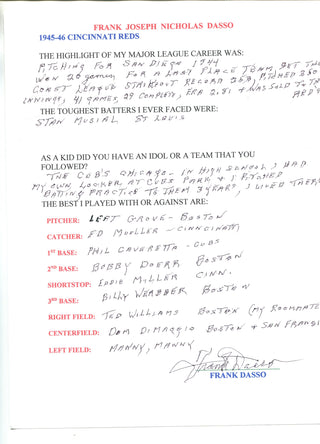 FRANK JOSEPH NICHOLAS DASSO
1945-46 CINCINNATI REDS
THE HIGHLIGHT OF MY MAJOR LEAGUE CAREER WAS:
PITCHING FOR SAN DIEGO 1944
WON 20 games, FOR A LAST PLACE TEAM, SET THE
COAST LEAGUE STRIKEOUT RECORD 253, PITCHED 330
INNINGS, 41 GAMES, 29 COMPLETE, ERA 2.81 + WAS SOLD TO THE
RED'S
THE TOUGHEST BATTERS I EVER FACED WERE:
STAN MUSIAL ST LOUIS
AS A KID DID YOU HAVE AN IDOL OR A TEAM THAT YOU
FOLLOWED?
THE CUB'S CHICAGO - IN HIGH SCHOOL, I HAD
MY OWN LOCKER AT CUBS PARK + I PITCHED
BATTING PRACTICE TO THEM 3 YEARS, I LIVED THERE
THE BEST I PLAYED WITH OR AGAINST ARE:
PITCHER: LEFT GROVE - BOSTON
CATCHER: ED MUELLER - CINNCINATTI
1st BASE: PHIL CAVERETTA - CUBS
2ND BASE: BOBBY DOERR BOSTON
SHORTSTOP: EDDIE MILLER CINN.
3RD BASE: BILLY WERBBER BOSTON
RIGHT FIELD: TED WILLIAMS BOSTON (MY ROOMMATE
CENTERFIELD: DOM DIMAGGIO BOSTON + SAN FRANCIS
LEFT FIELD: MANNY, MANNY
Frank Dasso
FRANK DASSO